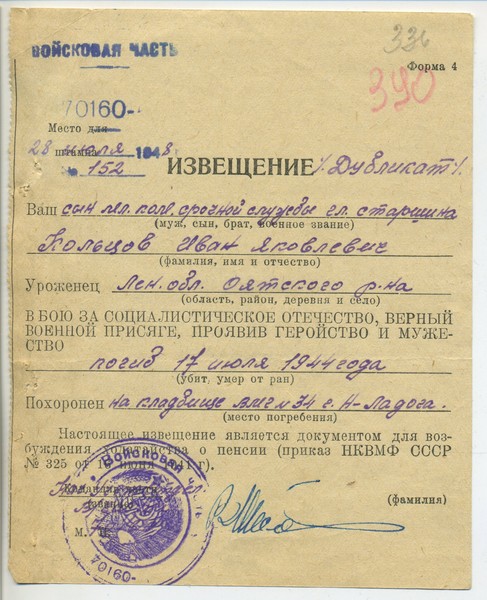 336
ВОЙСКОВАЯ ЧАСТЬ
Форма 4
390
70160-
Место для
штампа
28 июля 1948 г.
№ 152
ИЗВЕЩЕНИЕ /Дубликат/.
Ваш сын мл. ком. срочной службы гл. старшина
(муж, сын, брат, военное звание)
Кольцов Иван Яковлевич
(фамилия, имя и отчество)
Уроженец Лен. обл. Оятского р-на
(область, район, деревня и село)
В БОЮ ЗА СОЦИАЛИСТИЧЕСКОЕ ОТЕЧЕСТВО, ВЕРНЫЙ
ВОЕННОЙ ПРИСЯГЕ, ПРОЯВИВ ГЕРОЙСТВО И МУЖЕ-
СТВО
погиб 17 июля 1944 года
(убит, умер от ран)
Похоронен на кладбище г. Н-Ладога.
(место погребения)
Настоящее извещение является документом для воз-
буждения ходатайства о пенсии (приказ НКВМФ СССР
№ 325 от июня г).
Войсковая
(фамилия)
М.
70160-